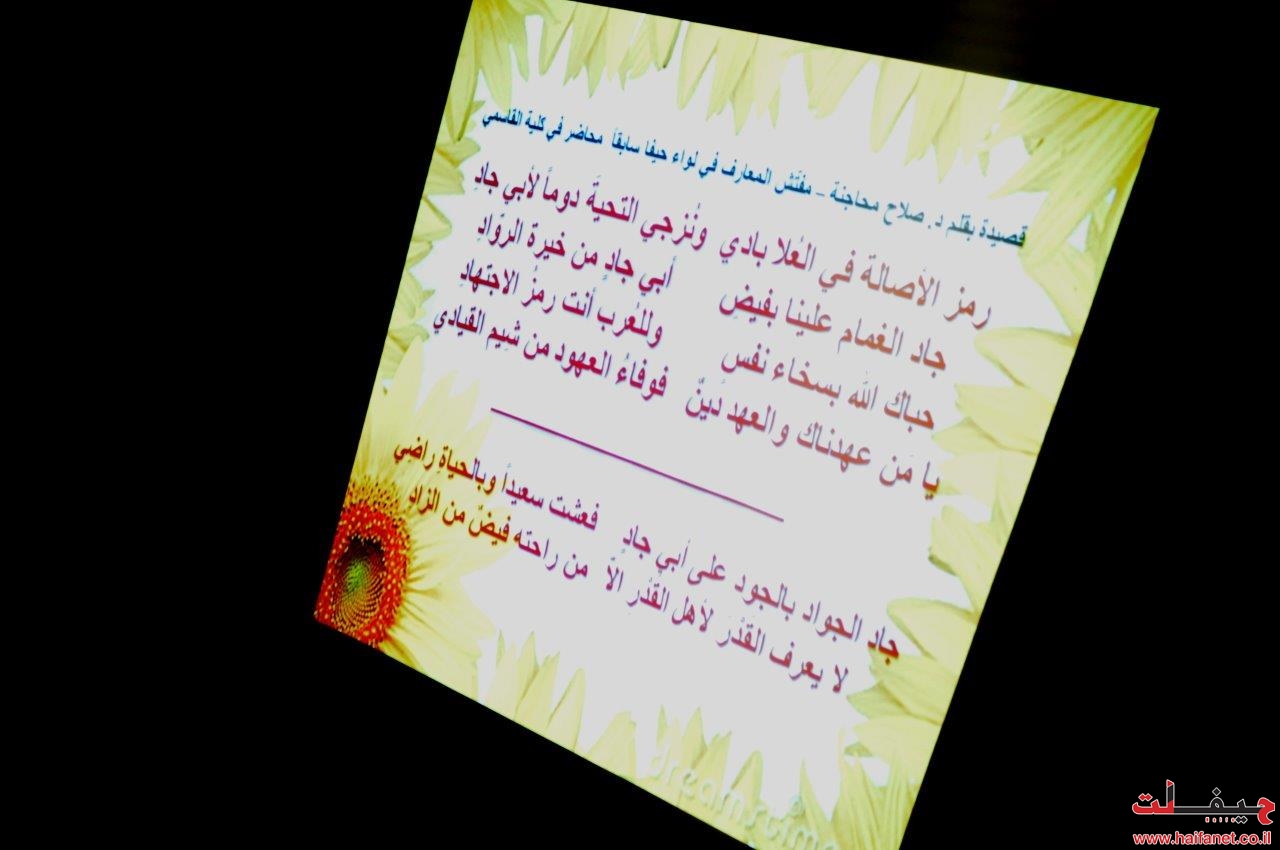 قصيدة بقلم د. صلاح محاجنة – مفتش المعارف في لواء حيفا سابقاً محاضر في كلية القاسمي
رمز الأصالة في العُلا بادي ونُزجي التحيةَ دوماً لأبي جادِ
جاد الغمام علينا بفيضِ أبي جادٍ من خيرة الروّادِ
حباك الله بسخاء نفس وللعُرب أنت رمزُ الاجتهادِ
يا مَن عهدناك والعهد دَينٌ فوفاءُ العهود من شِيم القيادي
جاد الجواد بالجود على أبي جادٍ فعشت سعيداً وبالحياةِ راضِي
لا يعرف القَدْرَ لأهل القَدْرِ الّا من راحته فيضٌ من الزاد
dreamstime
حيفا نت
www.haifanet.co.il